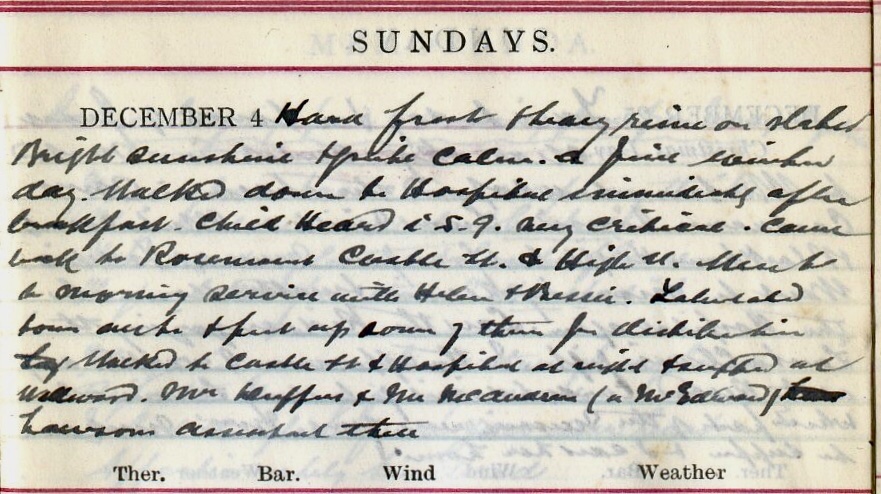 SUNDAYS.
DECEMBER 4 Hard frost & heavy rime on slates
Bright sunshine & quite calm. A fine winter
day. Walked down to Hospital immediately after
breakfast. Child Heard i S-9. very critical. Came
back to Rosemount Castle St. & High St. Went
to morning service with Helen & Bessie. Labelled
some & put up some of them for distribution
Walked to Castle St & Hospital at night & supped at
Mr Duffus & Mr McAndrew (a McEdward)
Lawsons assistant there
Ther. Bar. Wind Weather